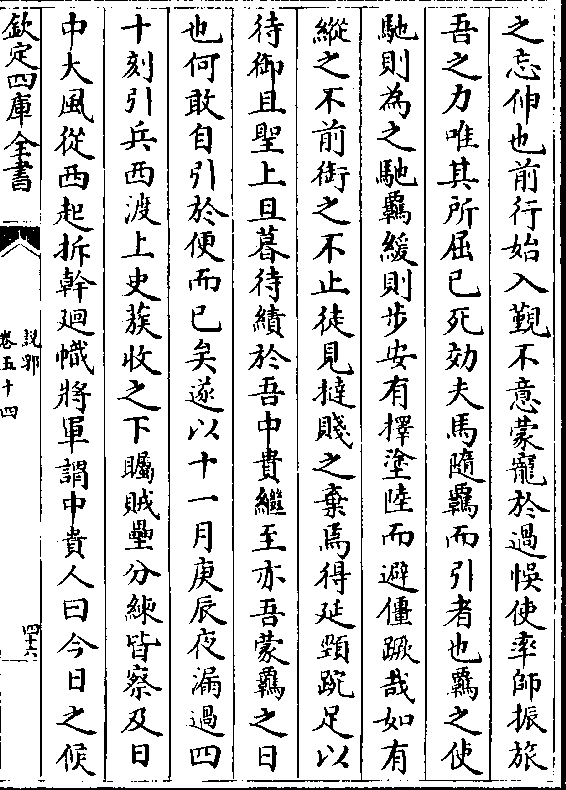 之忘伸也前行始入觐不意蒙寵於過悞使率師振旅
吾之力唯其所屈已死効夫馬隨羈而引者也羈之使
馳則為之馳羈緩則步安有擇塗陸而避僵蹶哉如有
縱之不前銜之不止徒見撻賤之棄焉得延頸跪足以
待御且聖上旦暮待績於吾中貴繼至亦吾蒙羈之日
也何敢自引於便而已矣遂以十一月庚辰夜漏過四
十刻引兵西渡上史蔟收之下矚賊壘分練皆察及日
中大風從西起折幹廻幟將軍謂中貴人曰今日之候
欽定四庫全書
說郛
卷五十四
四十六